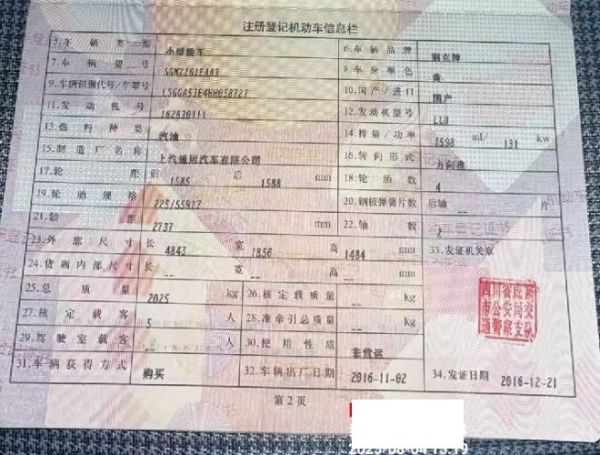 注册登记机动车信息栏
5.车辆类型 小型轿车 6.车辆品牌 别克牌
7.车辆型号 SGM7161FAA3 8.车身颜色 黄
9.车辆识别代号/车架号 10.国产/进口 国产
11.发动机号 162830111 12.发动机型号 LLU
13.燃料种类 汽油 14.排量/功率 1598 ml/ 131 kw
15.制造厂名称 上汽通用汽车有限公司 16.转向形式 方向盘
17.轮距 前 1585 后 1588 mm 18.轮胎数 4
19.轮胎规格 225/55R17 20.钢板弹簧片数 后轴 -- 片
21.轴距 2737 mm 22.轴数 2
23.外廓尺寸 长 4843 宽 1856 高 1484 mm 33.发证机关章
24.货厢内部尺寸 长 -- 宽 -- 高 -- mm
25.总质量 2025 kg 26.核定载质量 -- kg
27.核定载客 5 人 28.准牵引总质量 -- kg
29.驾驶室载客 -- 人 30.使用性质 非营运
31.车辆获得方式 购买 32.车辆出厂日期 2016-11-02 34.发证日期 2016-12-21
第2页